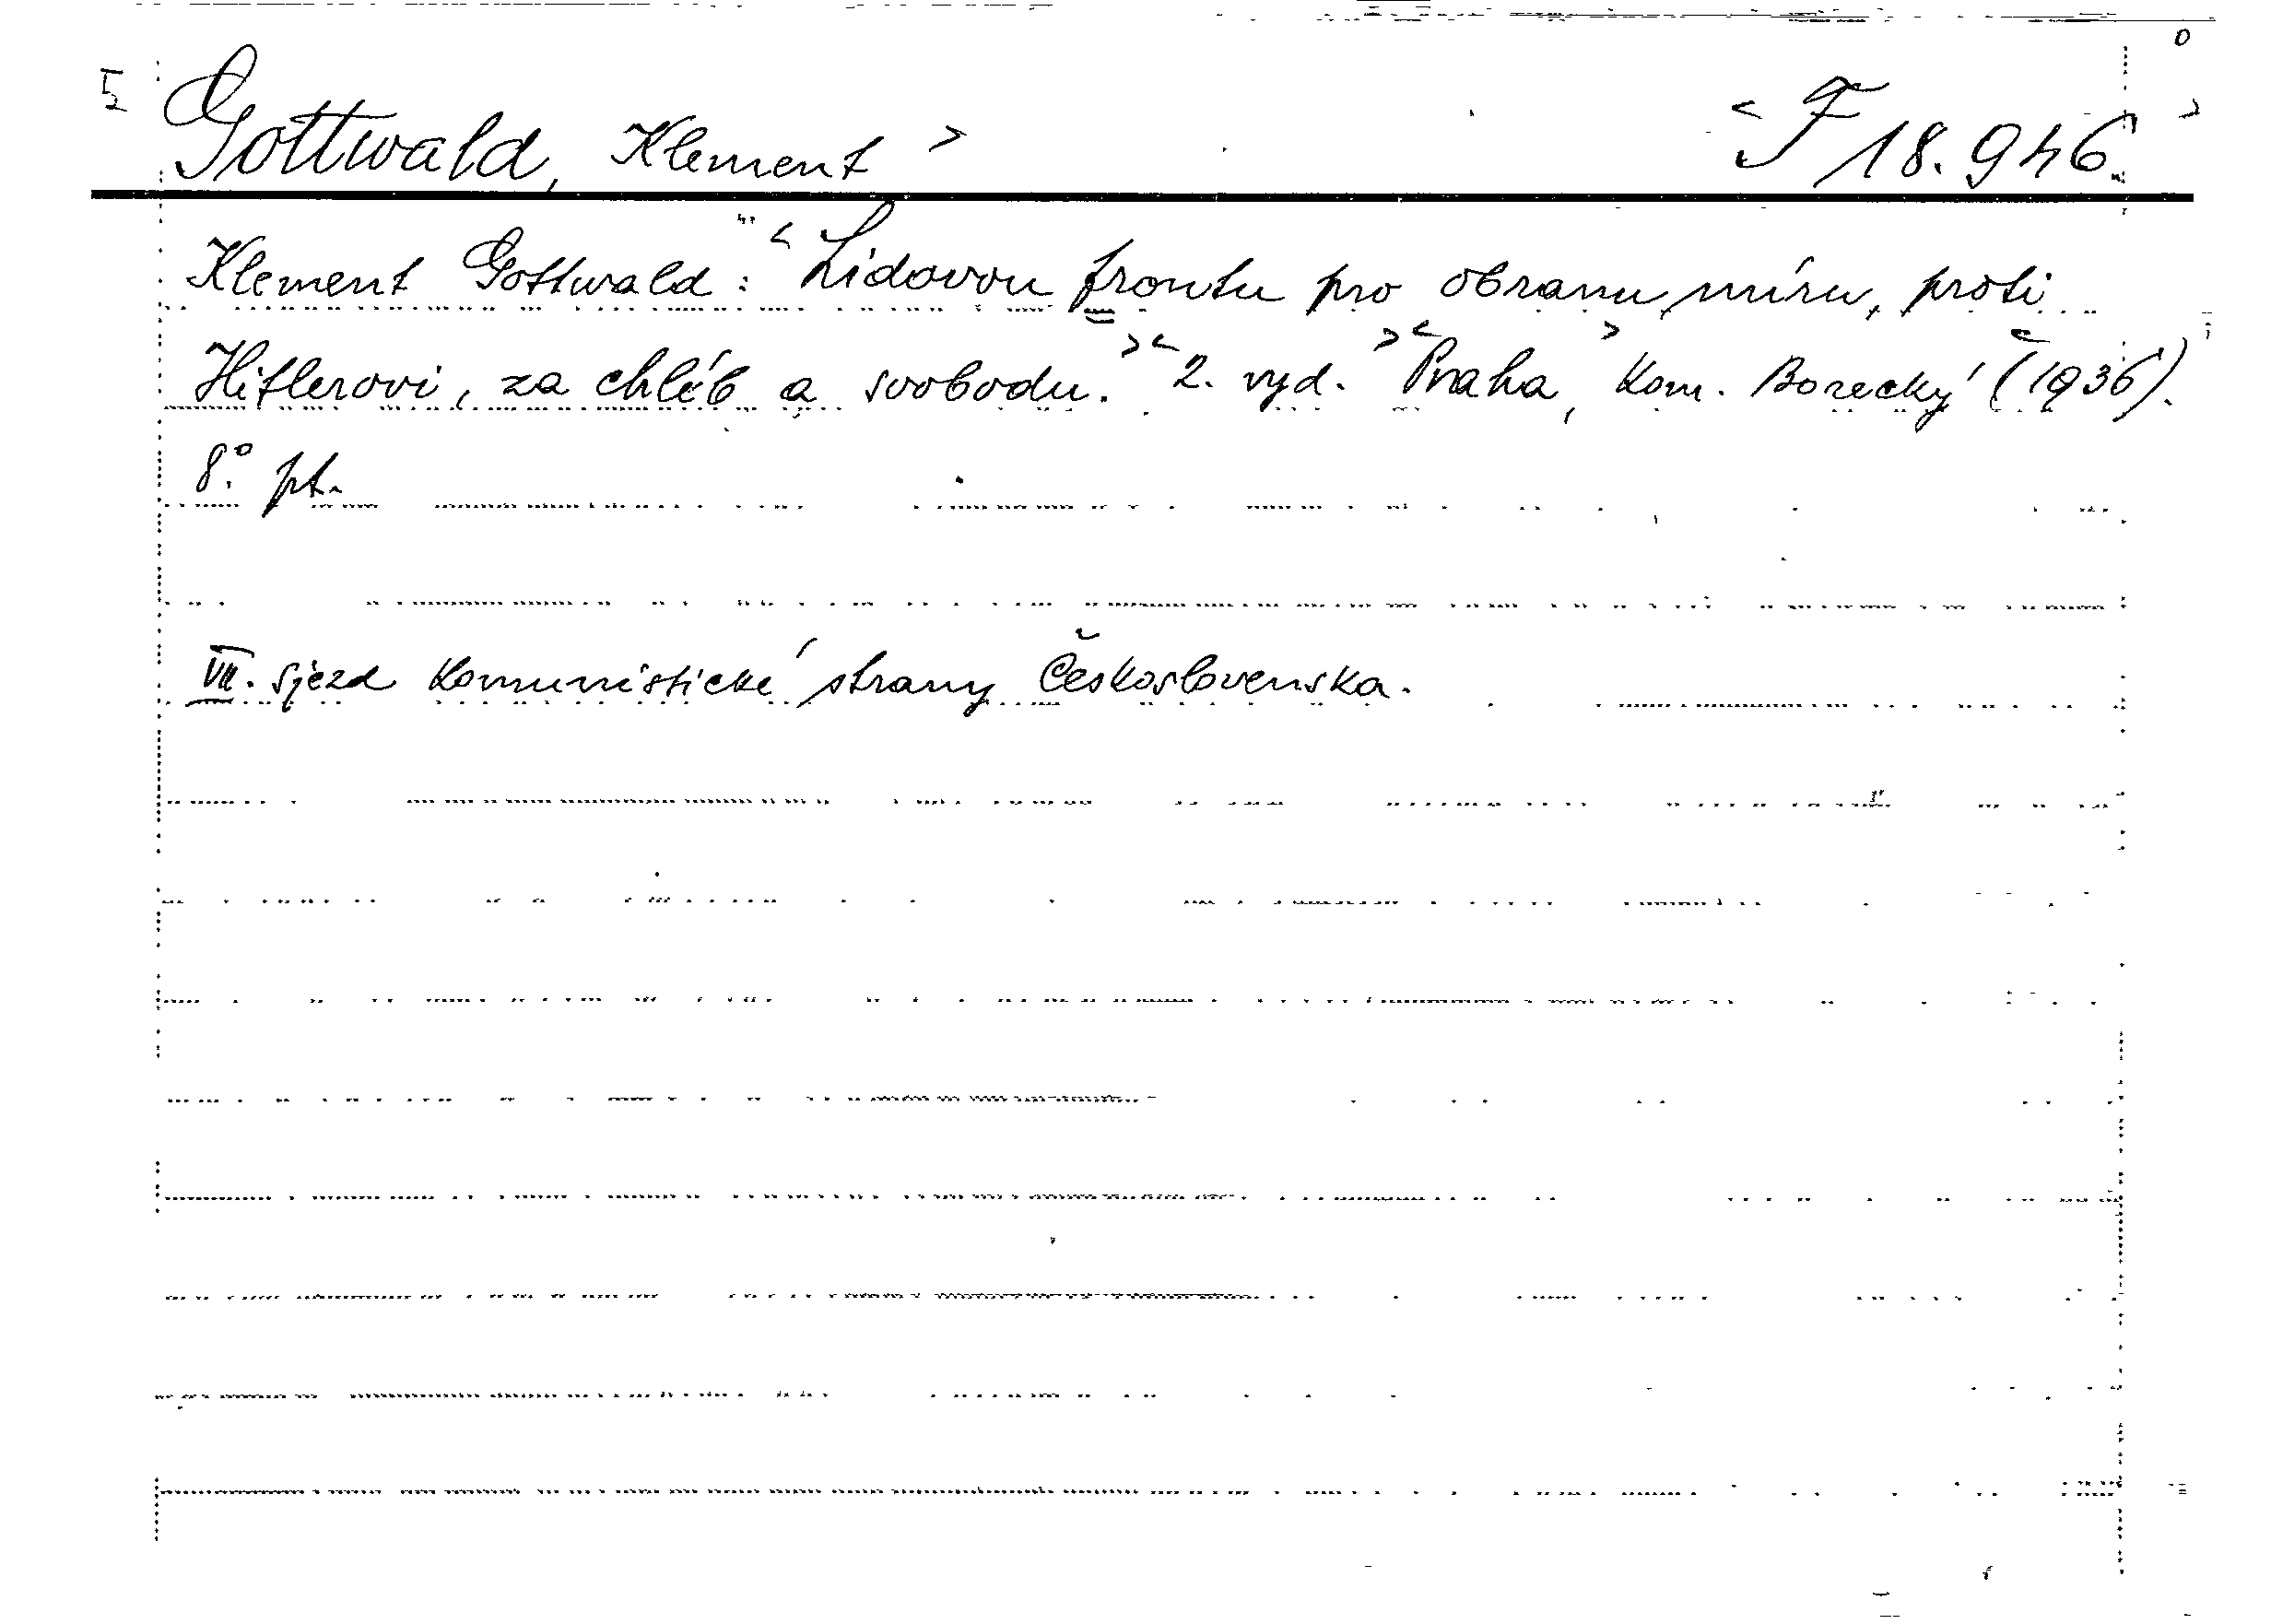 Gottwald, Klement > < F 18.946. >
Klement Gottwald: < Lidovou frontu pro obranu míru, proti
Hitlerovi, za chléb a svobodu. > < 2. vyd. > < Praha, > Kom. Borecký (1936).
8.° pt.
VII. sjezd Komunistické strany Československa.